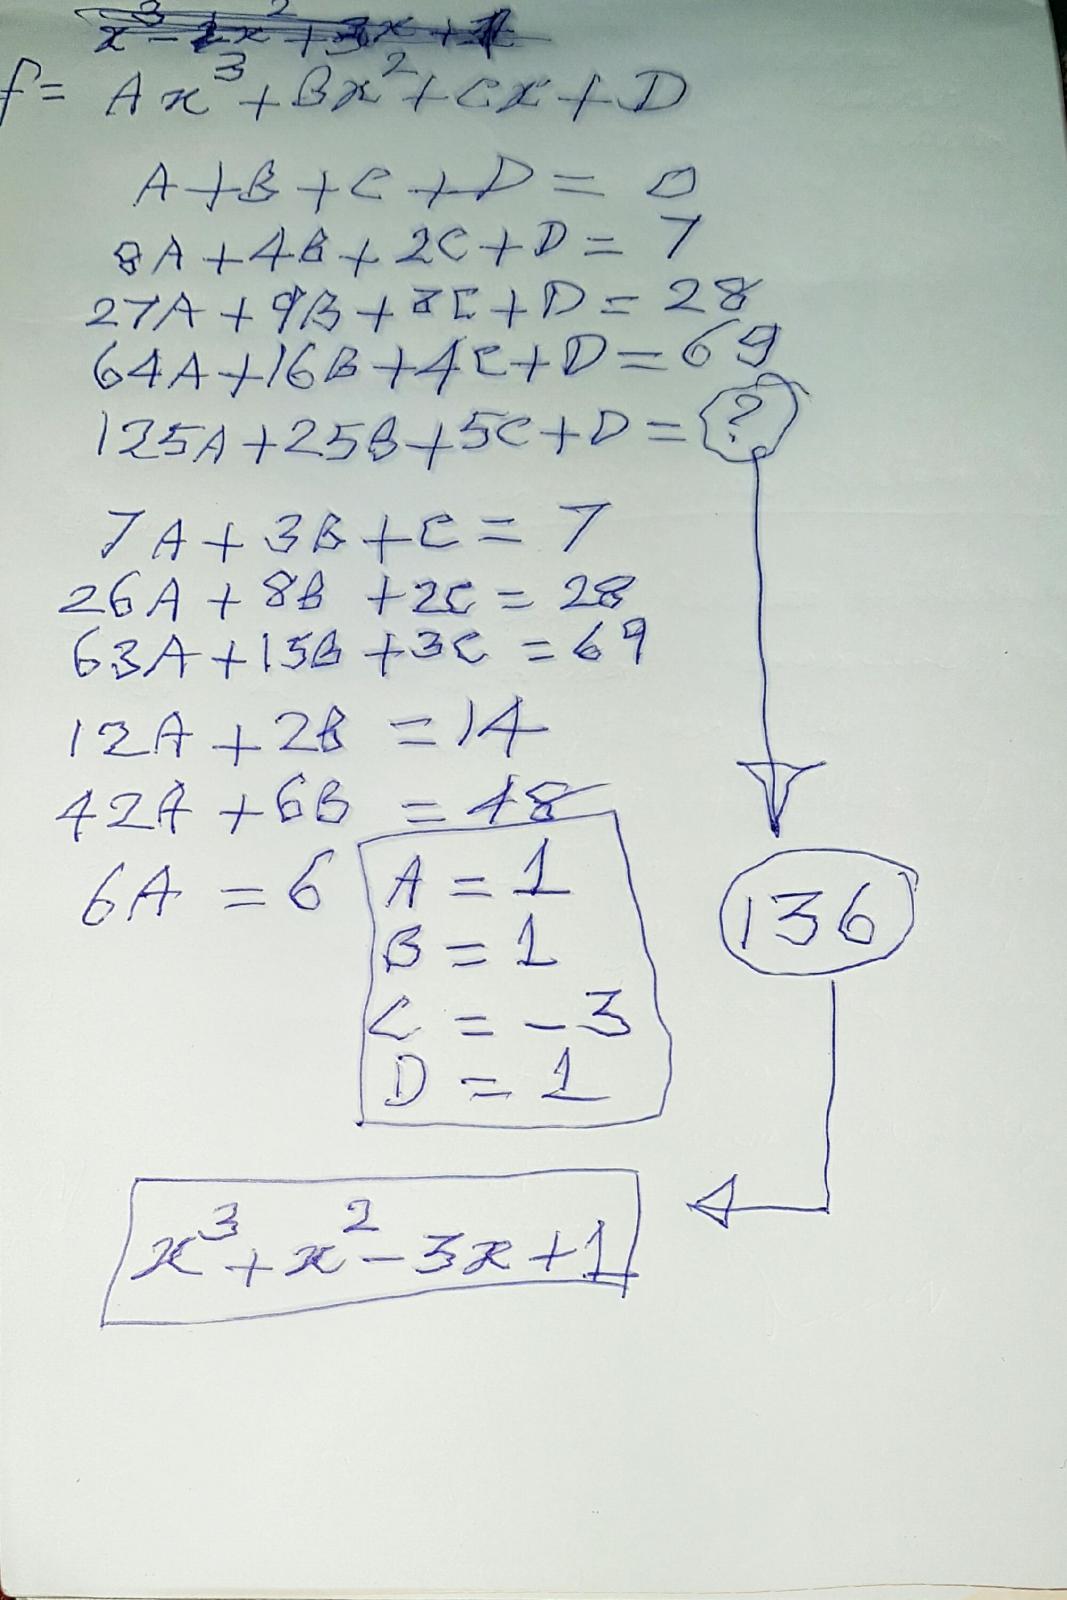 x³ - 2x² + 3x + 1
f = Ax³ + Bx² + Cx + D
A + B + C + D = 0
8A + 4B + 2C + D = 7
27A + 9B + 3C + D = 28
64A + 16B + 4C + D = 69
125A + 25B + 5C + D = ?
7A + 3B + C = 7
26A + 8B + 2C = 28
63A + 15B + 3C = 69
12A + 2B = 14
42A + 6B = 48
6A = 6
A = 1
B = 1
C = -3
D = 1
136
x³ + x² - 3x + 1